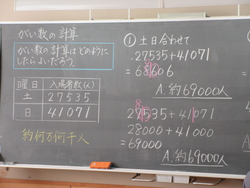 がい数の計算
がい数の計算はどのように
したらよいだろう。
曜日 入場者数(人)
土 27535
日 41071
約何万何千人
① 土日合わせて
27535+41071
=68606
A.約69000人
27535+41071
28000+41000
=69000
A.約69000人